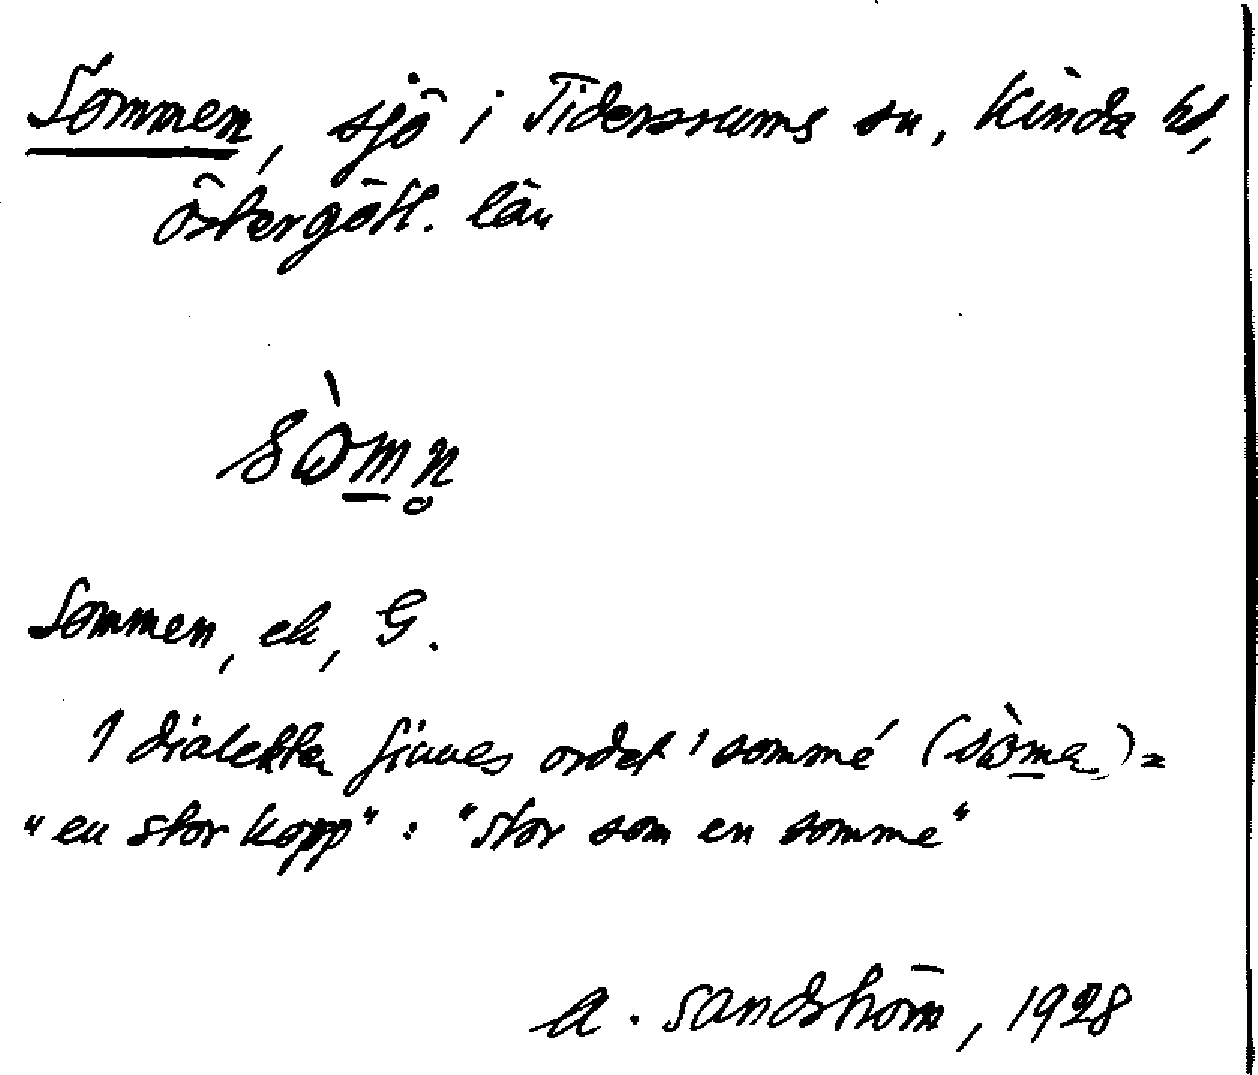 Sommen, sjö i Tidersrums sn, Kinda hd,
Östergötl. län
sòmn̥
Sommen, ek, G.
I dialekten finnes ordet 'somme' (sòma) =
"en stor kopp" : "stor som en somme"
A. Sandström, 1928